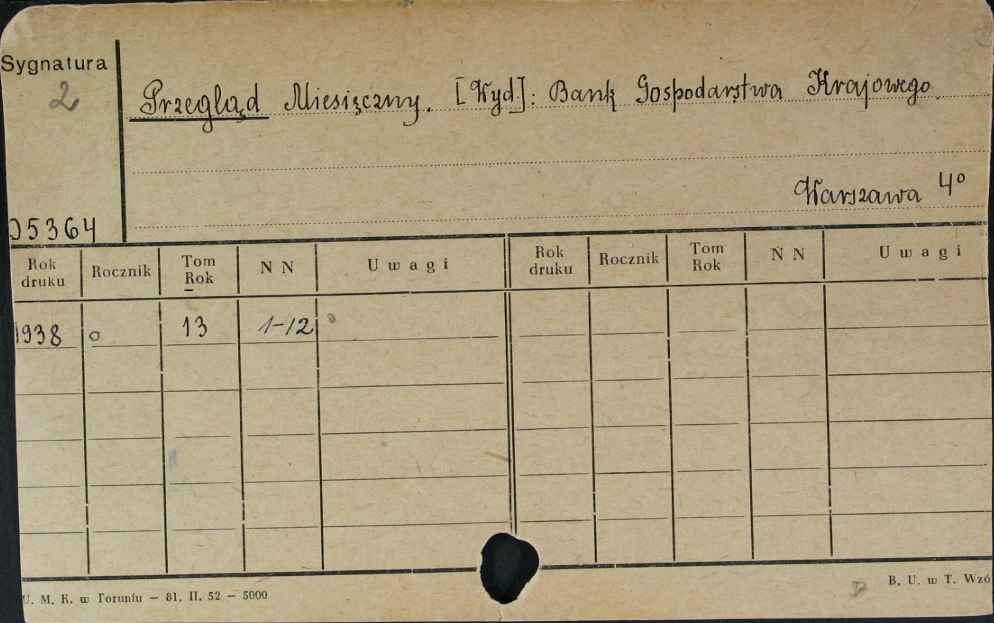 Sygnatura
2
Przegląd Miesięczny. [Wyd]: Bank Gospodarstwa Krajowego.
Warszawa 4°
05364
Rok druku Rocznik Tom Rok N N Uwagi Rok druku Rocznik Tom Rok N N Uwagi
1938 13 1-12
U. M. K. w Toruniu — 81. II. 52 — 5000
B. U. w T. Wzó